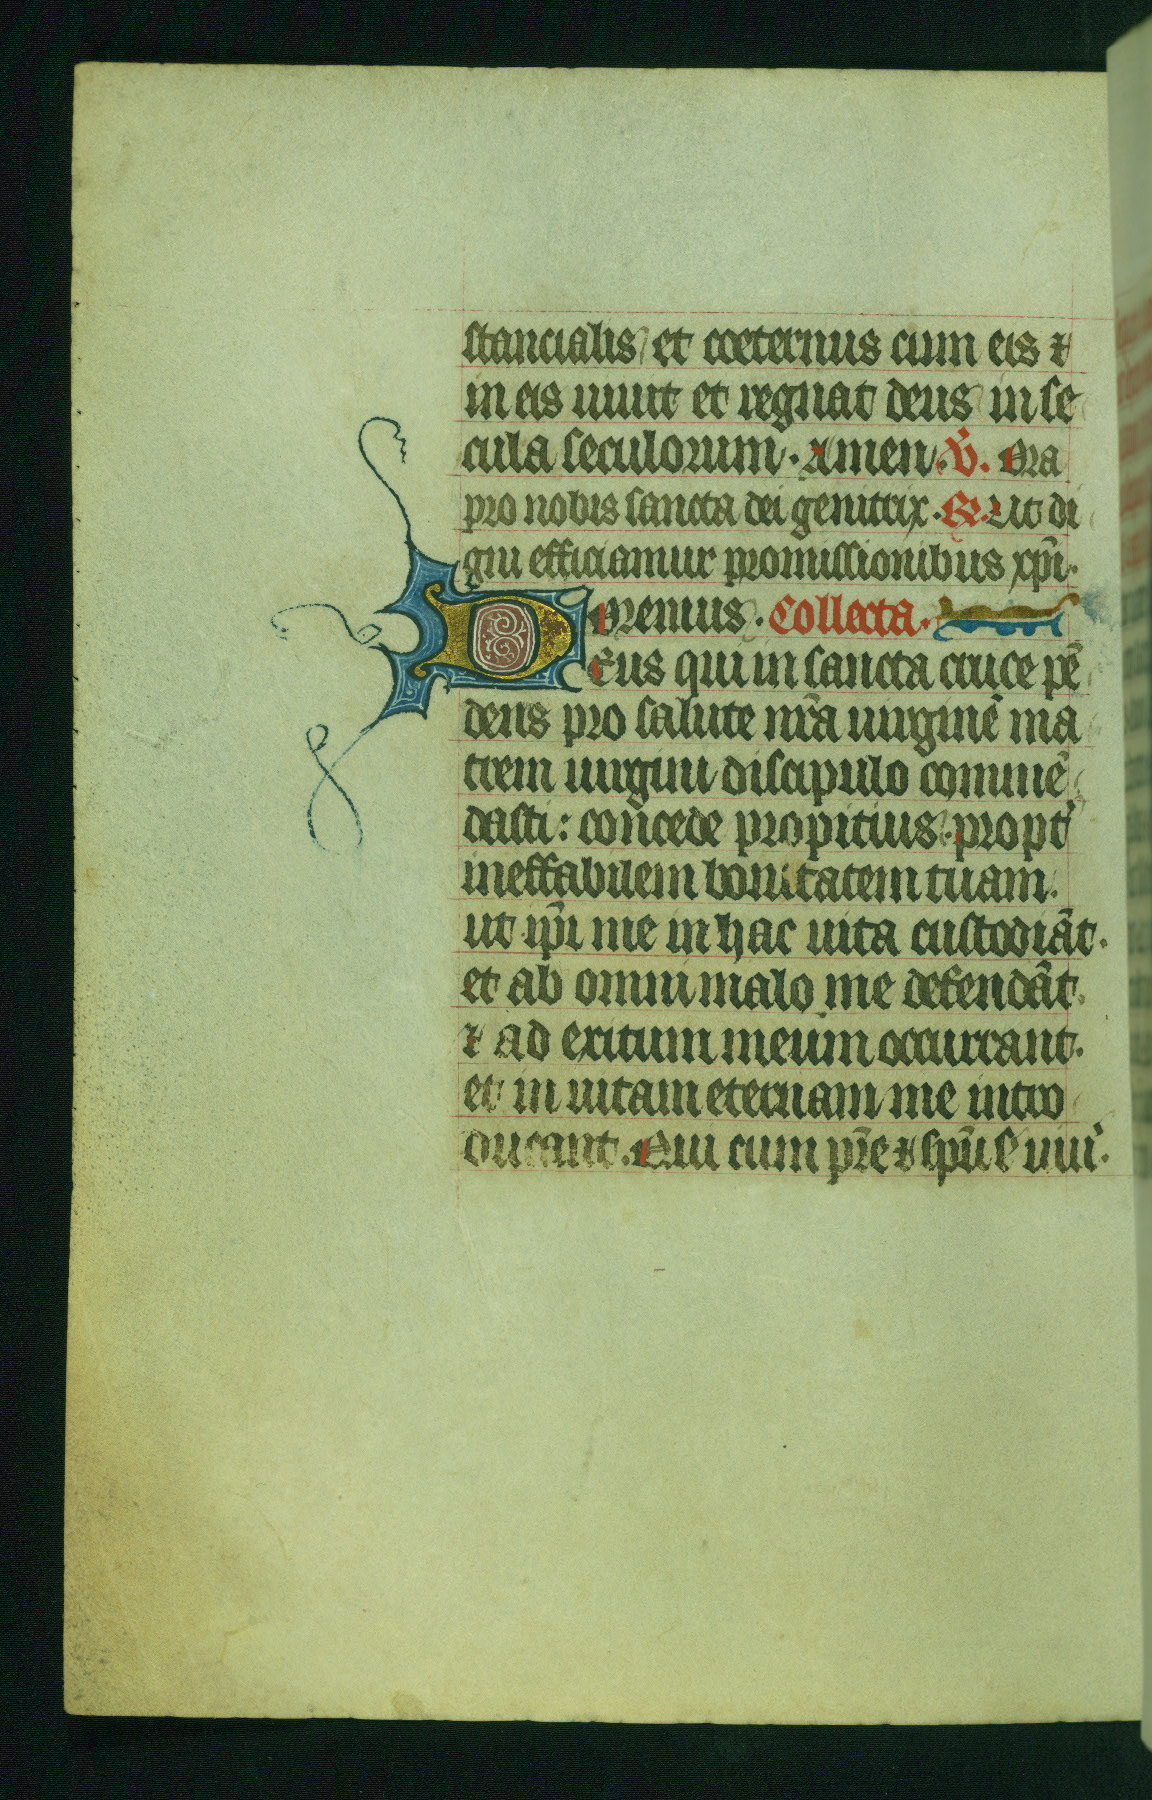 stancialis et coeternus cum eis ⁊
in eis uiuit et regnat deus in se
cula seculorum. Amen. V̄. Ora
pro nobis sancta dei genitrix. R̄. Ut di
gni efficiamur promissionibus xp̄i.
Oremus. Collecta.
Deus qui in sancta cruce pē
dens pro salute nr̄a uirginē ma
trem uirgini discipulo comme̅
dasti: concede propitius. propt'
ineffabilem bonitatem tuam.
ut ip̄i me in hac uita custodiāt.
et ab omni malo me defendāt.
⁊ ad exitum meum occurrant.
et in uitam eternam me intro
ducant. Qui cum pr̄e ⁊ sp̄u s̄ uiui'.